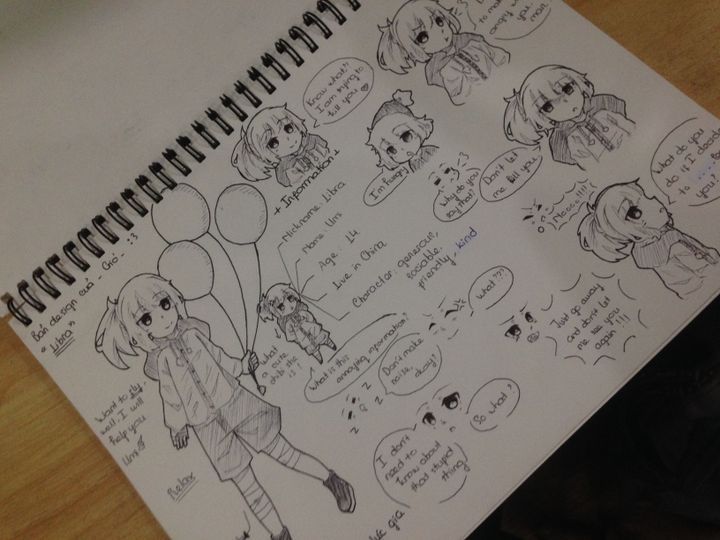 Know what?!
I am trying to
kill you
+ Information +
Nickname: Libra
Name: Umi
Age: 14
Live in China
Character: generous,
sociable,
friendly, kind
I'm hungry
Why do you
say that?
to make
angry
you,
man
Don't let
me kill you
What do you
do if I decide
to
you?
Nooo!!!!
What???
Just go away
and don't let
me see you
again !!!
What is this
annoying information?
Don't make
noise,
okay!
z
z
z
So what?
I don't
need to
know about
that stupid
thing
What
a cute
chibi she
is!
Bản design của - Chó - :3
"Libra"
Want to fly,
well, I will
help you
Umi
Relax
giả